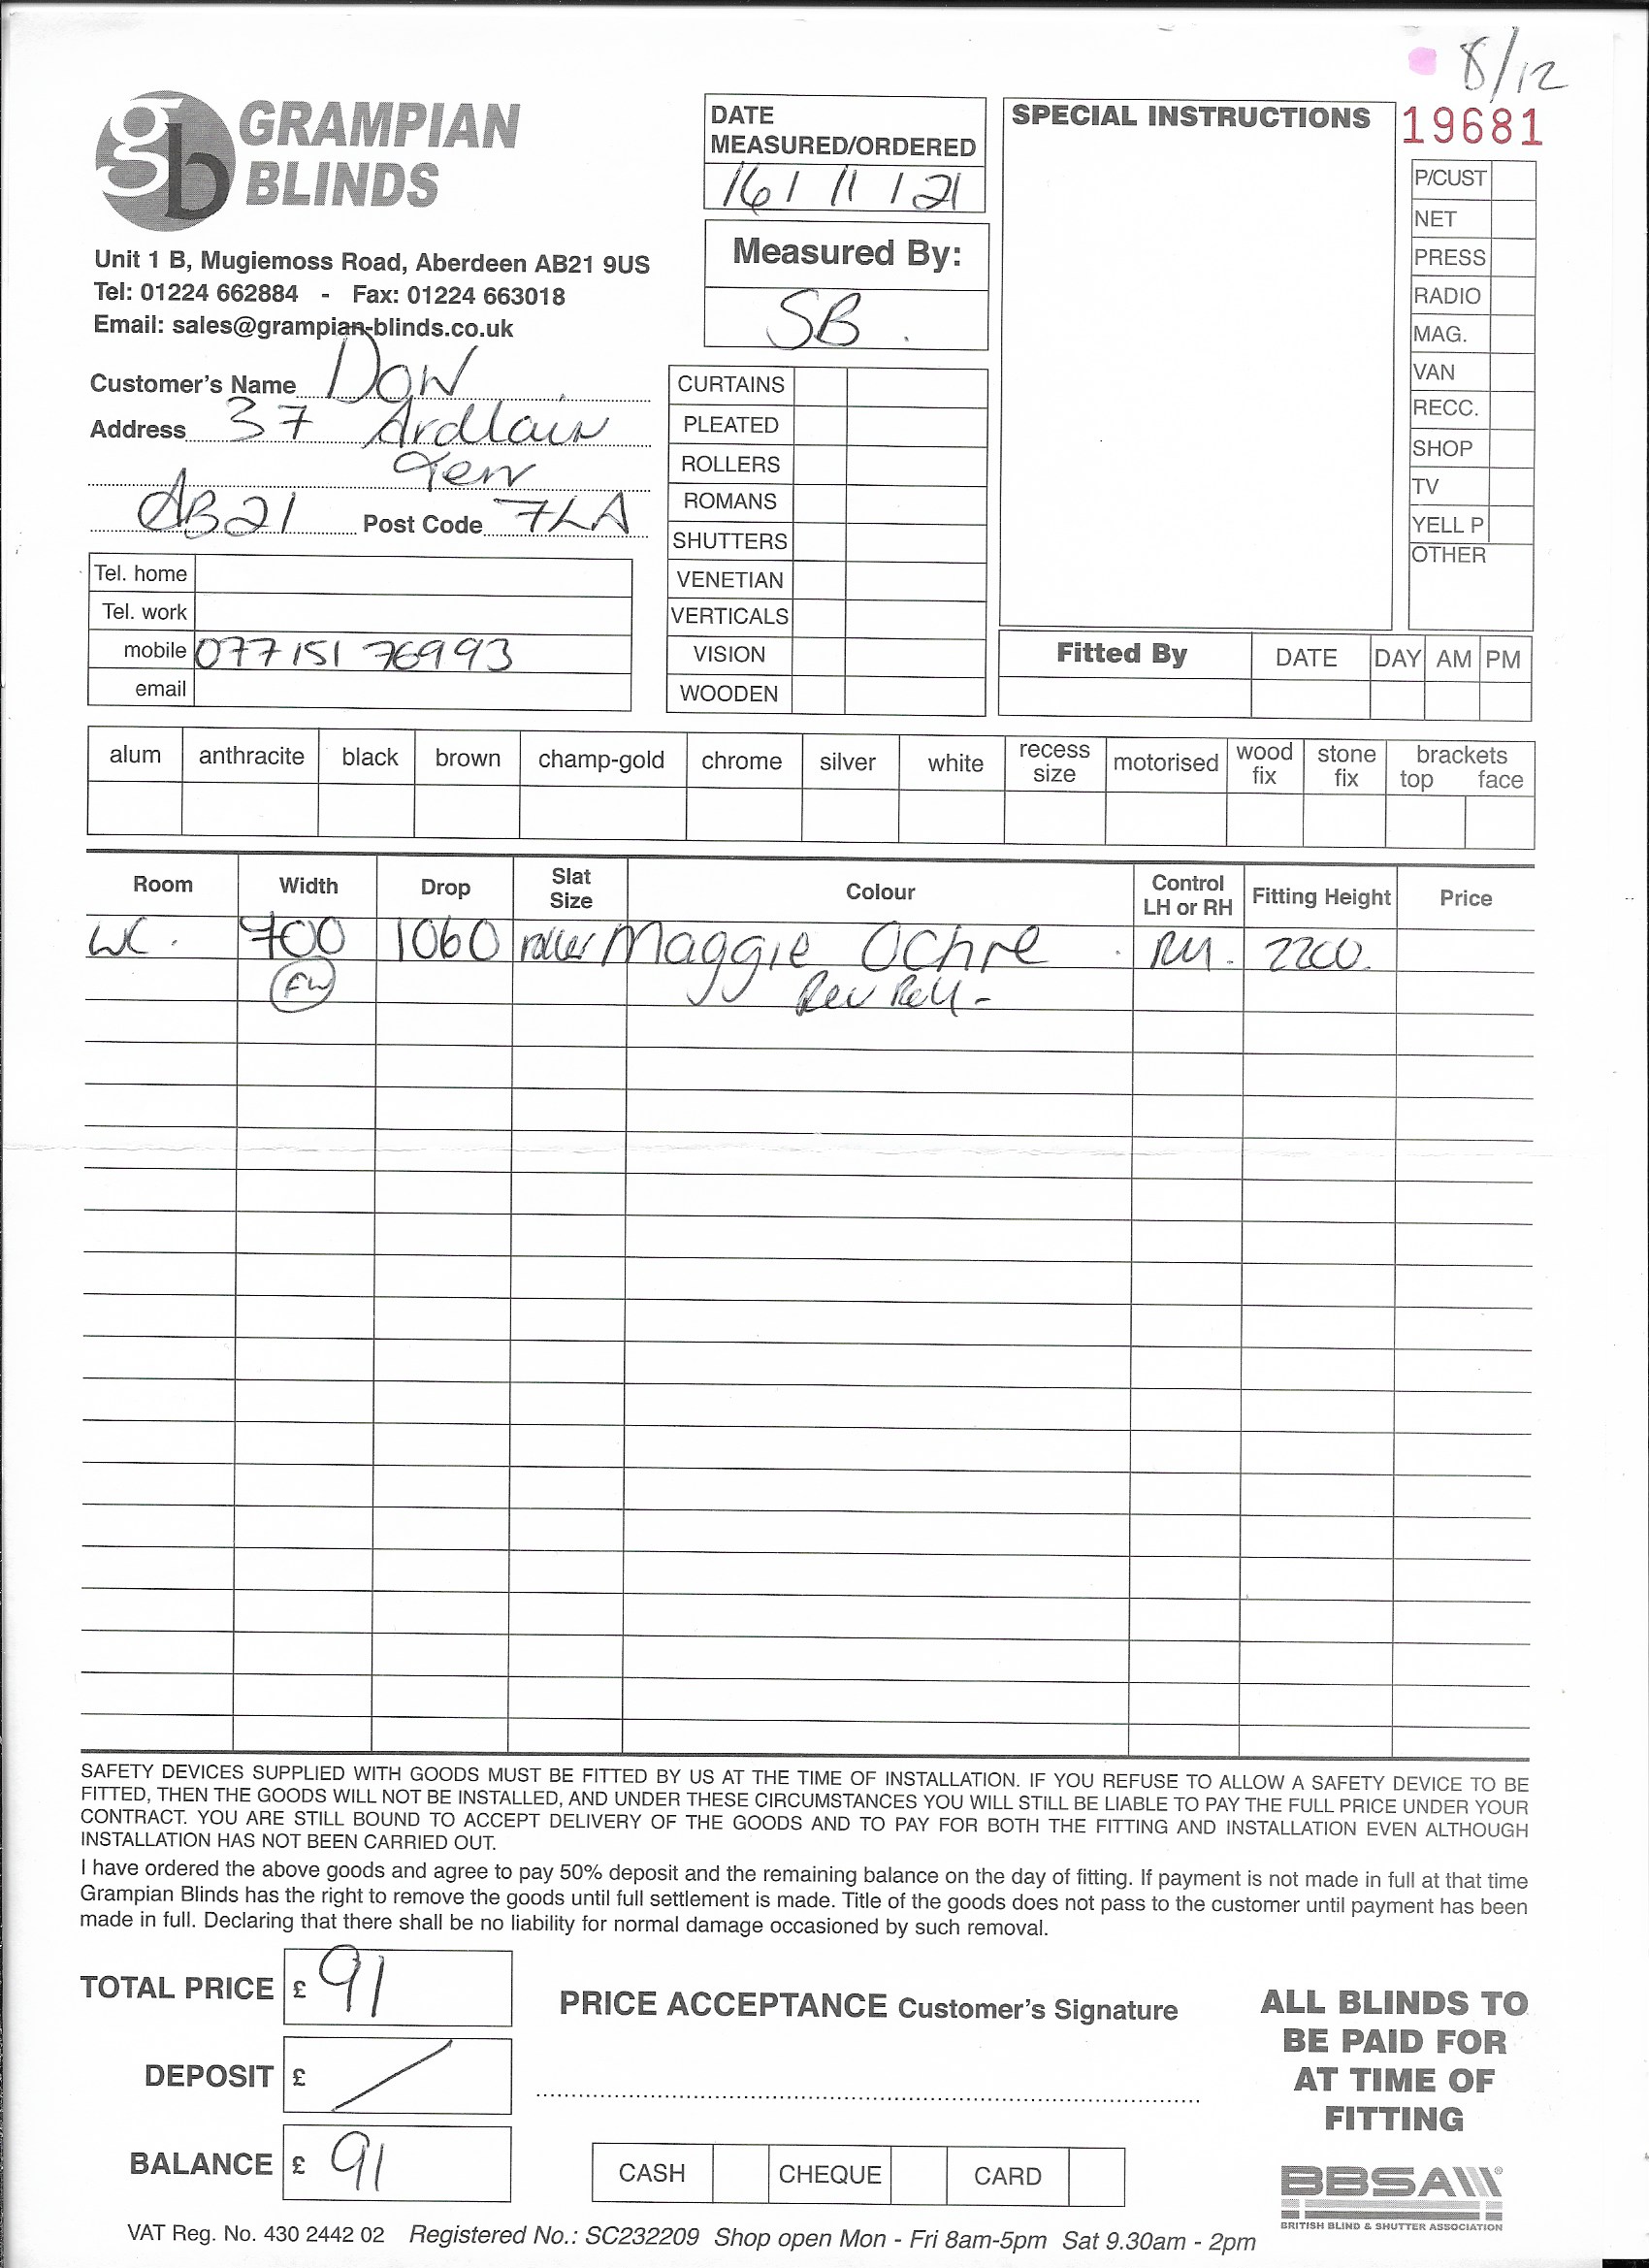 8/12
GRAMPIAN
BLINDS
Unit 1 B, Mugiemoss Road, Aberdeen AB21 9US
Tel: 01224 662884 - Fax: 01224 663018
Email: sales@grampian-blinds.co.uk
Customer's Name Dow
Address 37 Ardlair
Terr
AB21 Post Code 7LA
Tel. home
Tel. work
mobile 077151 76993
email
DATE
MEASURED/ORDERED
16/11/21
Measured By:
SB.
CURTAINS
PLEATED
ROLLERS
ROMANS
SHUTTERS
VENETIAN
VERTICALS
VISION
WOODEN
SPECIAL INSTRUCTIONS
19681
P/CUST
NET
PRESS
RADIO
MAG.
VAN
RECC.
SHOP
TV
YELL P
OTHER
Fitted By DATE DAY AM PM
alum anthracite black brown champ-gold chrome silver white recess size motorised wood fix stone fix brackets top face
Room Width Drop Slat Size Colour Control LH or RH Fitting Height Price
WC. 700 1060 roller Maggie Ochre RH. 2200.
FW Rev Roll -
SAFETY DEVICES SUPPLIED WITH GOODS MUST BE FITTED BY US AT THE TIME OF INSTALLATION. IF YOU REFUSE TO ALLOW A SAFETY DEVICE TO BE
FITTED, THEN THE GOODS WILL NOT BE INSTALLED, AND UNDER THESE CIRCUMSTANCES YOU WILL STILL BE LIABLE TO PAY THE FULL PRICE UNDER YOUR
CONTRACT. YOU ARE STILL BOUND TO ACCEPT DELIVERY OF THE GOODS AND TO PAY FOR BOTH THE FITTING AND INSTALLATION EVEN ALTHOUGH
INSTALLATION HAS NOT BEEN CARRIED OUT.
I have ordered the above goods and agree to pay 50% deposit and the remaining balance on the day of fitting. If payment is not made in full at that time
Grampian Blinds has the right to remove the goods until full settlement is made. Title of the goods does not pass to the customer until payment has been
made in full. Declaring that there shall be no liability for normal damage occasioned by such removal.
TOTAL PRICE £ 91
DEPOSIT £ /
BALANCE £ 91
PRICE ACCEPTANCE Customer's Signature
CASH CHEQUE CARD
ALL BLINDS TO
BE PAID FOR
AT TIME OF
FITTING
BBSA
BRITISH BLIND & SHUTTER ASSOCIATION
VAT Reg. No. 430 2442 02 Registered No.: SC232209 Shop open Mon - Fri 8am-5pm Sat 9.30am - 2pm